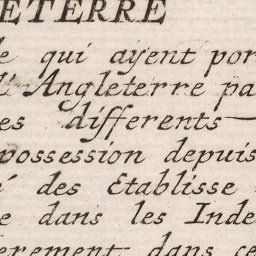 ETERRE
e qui ayent por
l'Angleterre pa
es differents
possession depuis
i des Etablisse
e dans les Inde
erement dans ce